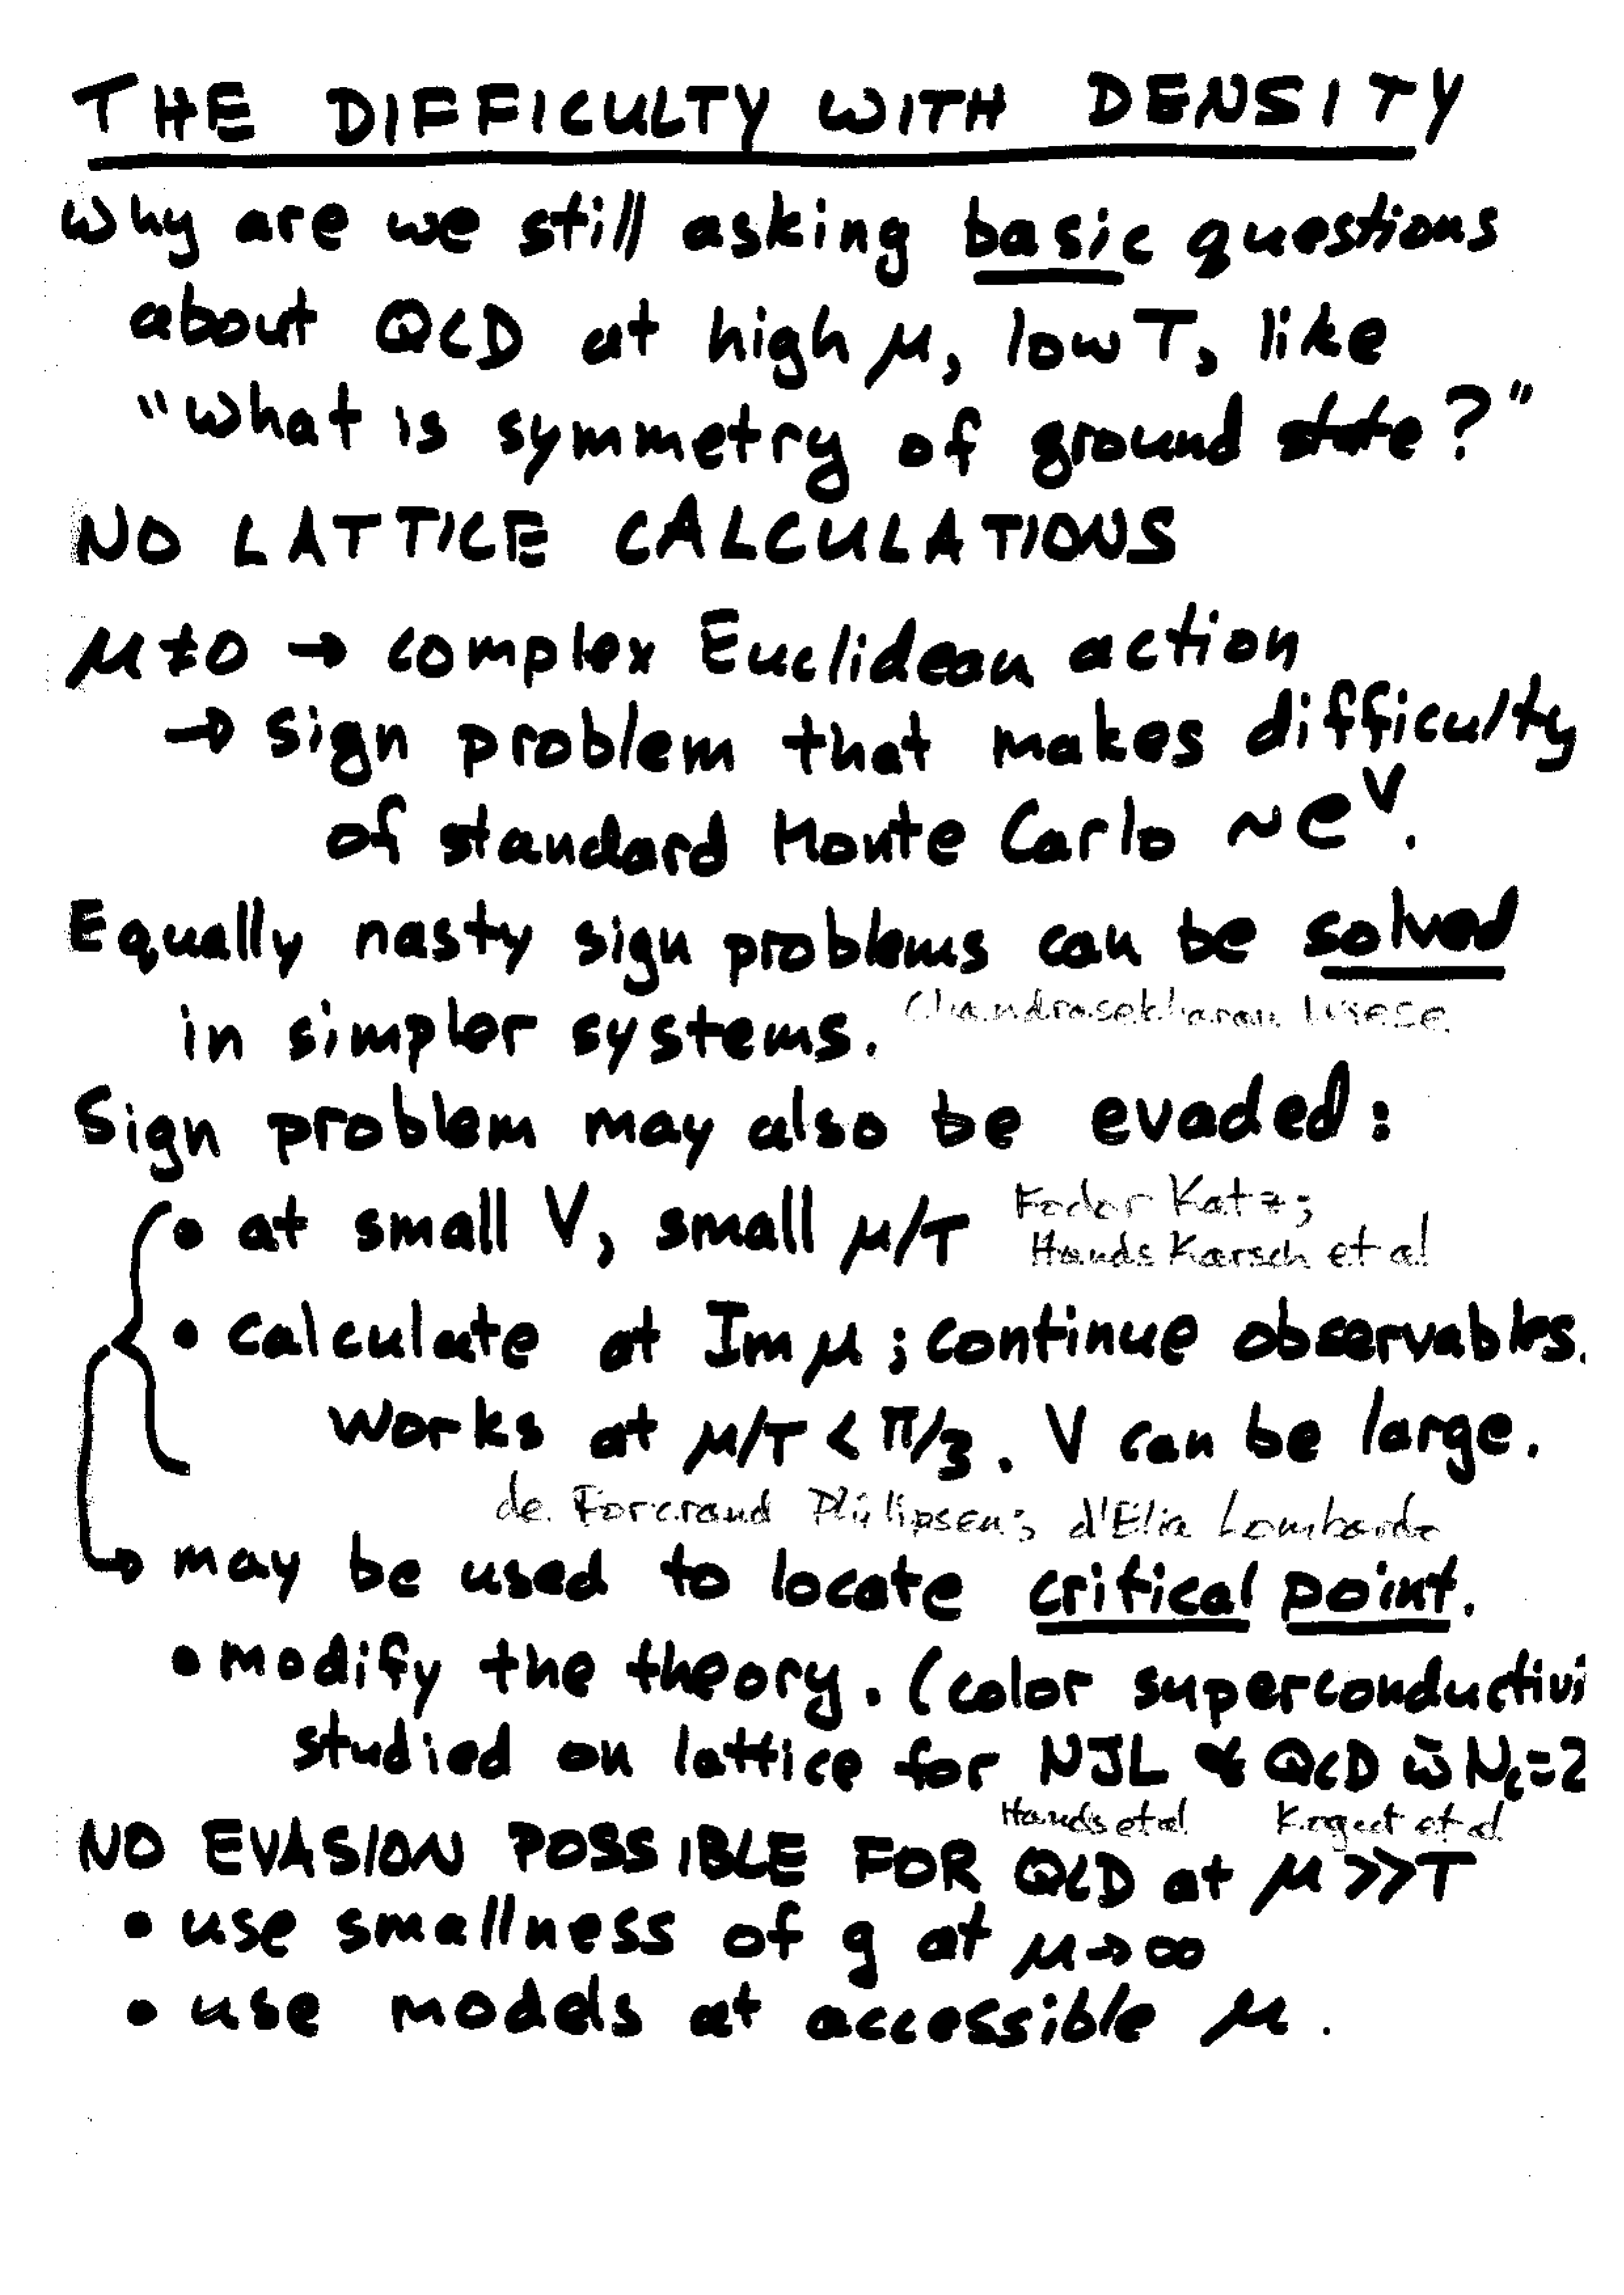 THE DIFFICULTY WITH DENSITY
Why are we still asking basic questions
about QCD at high μ, low T, like
"what is symmetry of ground state?"
NO LATTICE CALCULATIONS
μ≠0 → complex Euclidean action
→ sign problem that makes difficulty
of standard Monte Carlo ~e^V.
Equally nasty sign problems can be solved
in simpler systems. Chandrasekharan Wiese
Sign problem may also be evaded:
• at small V, small μ/T Fodor Katz;
Hands Karsch et al
• calculate at Im μ; continue observables.
Works at μ/T < π/3. V can be large.
de Forcrand Philipsen; d'Elia Lombardo
→ may be used to locate critical point.
• modify the theory. (color superconductivi
studied on lattice for NJL & QCD w̄ Nc=2
Hands et al Kogut et al
NO EVASION POSSIBLE FOR QCD at μ>>T
• use smallness of g at μ→∞
• use models at accessible μ.